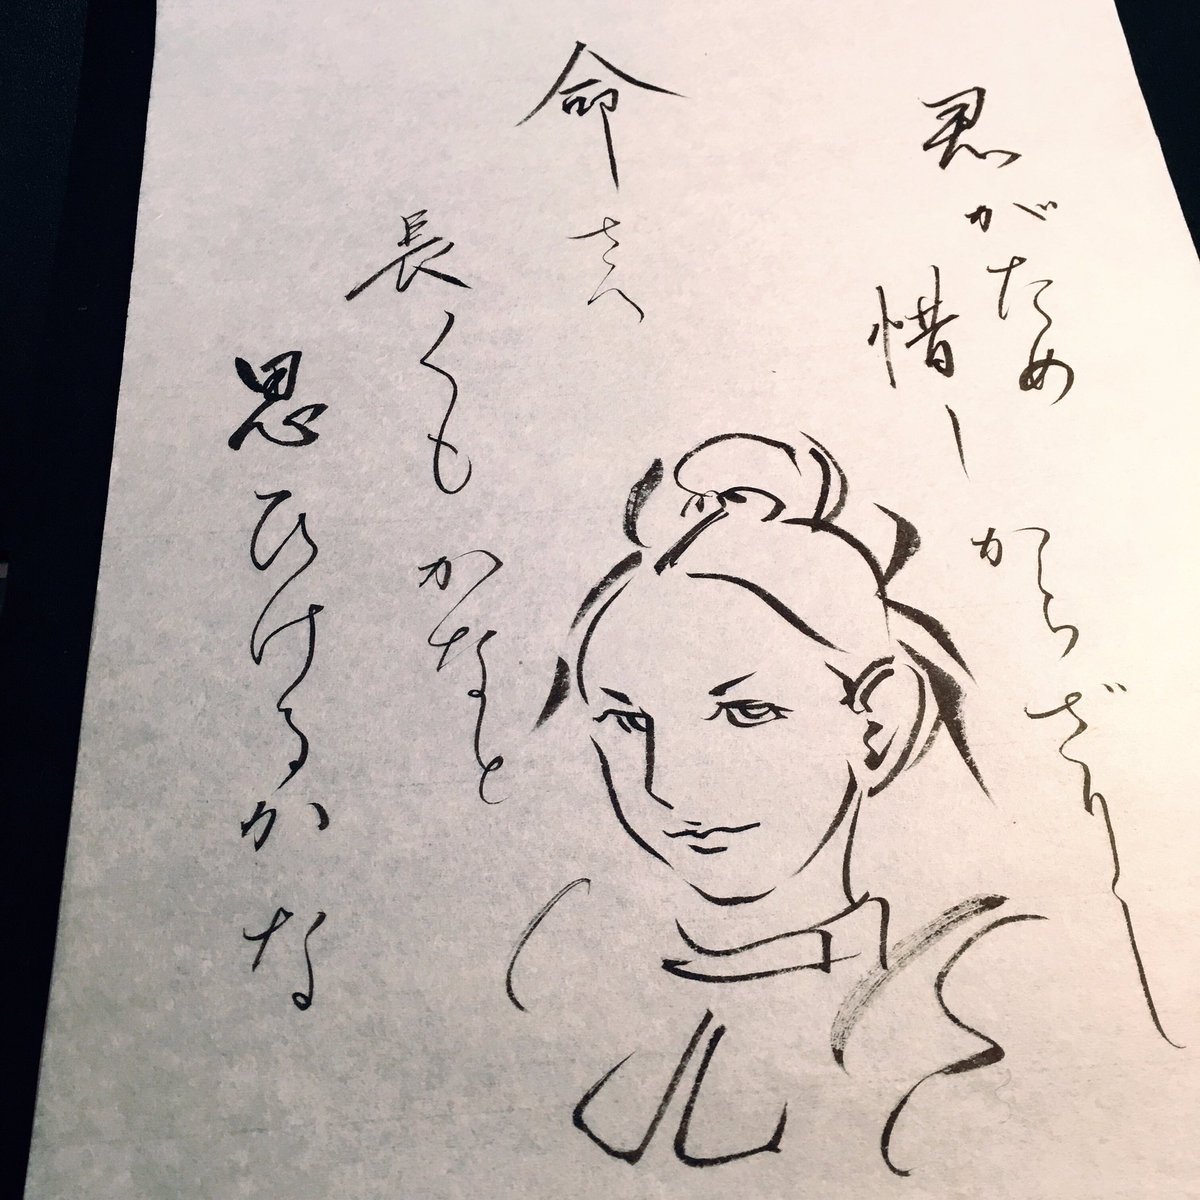 君がため
惜しからざりし
命さへ
長くもかなと
思ひけるかな